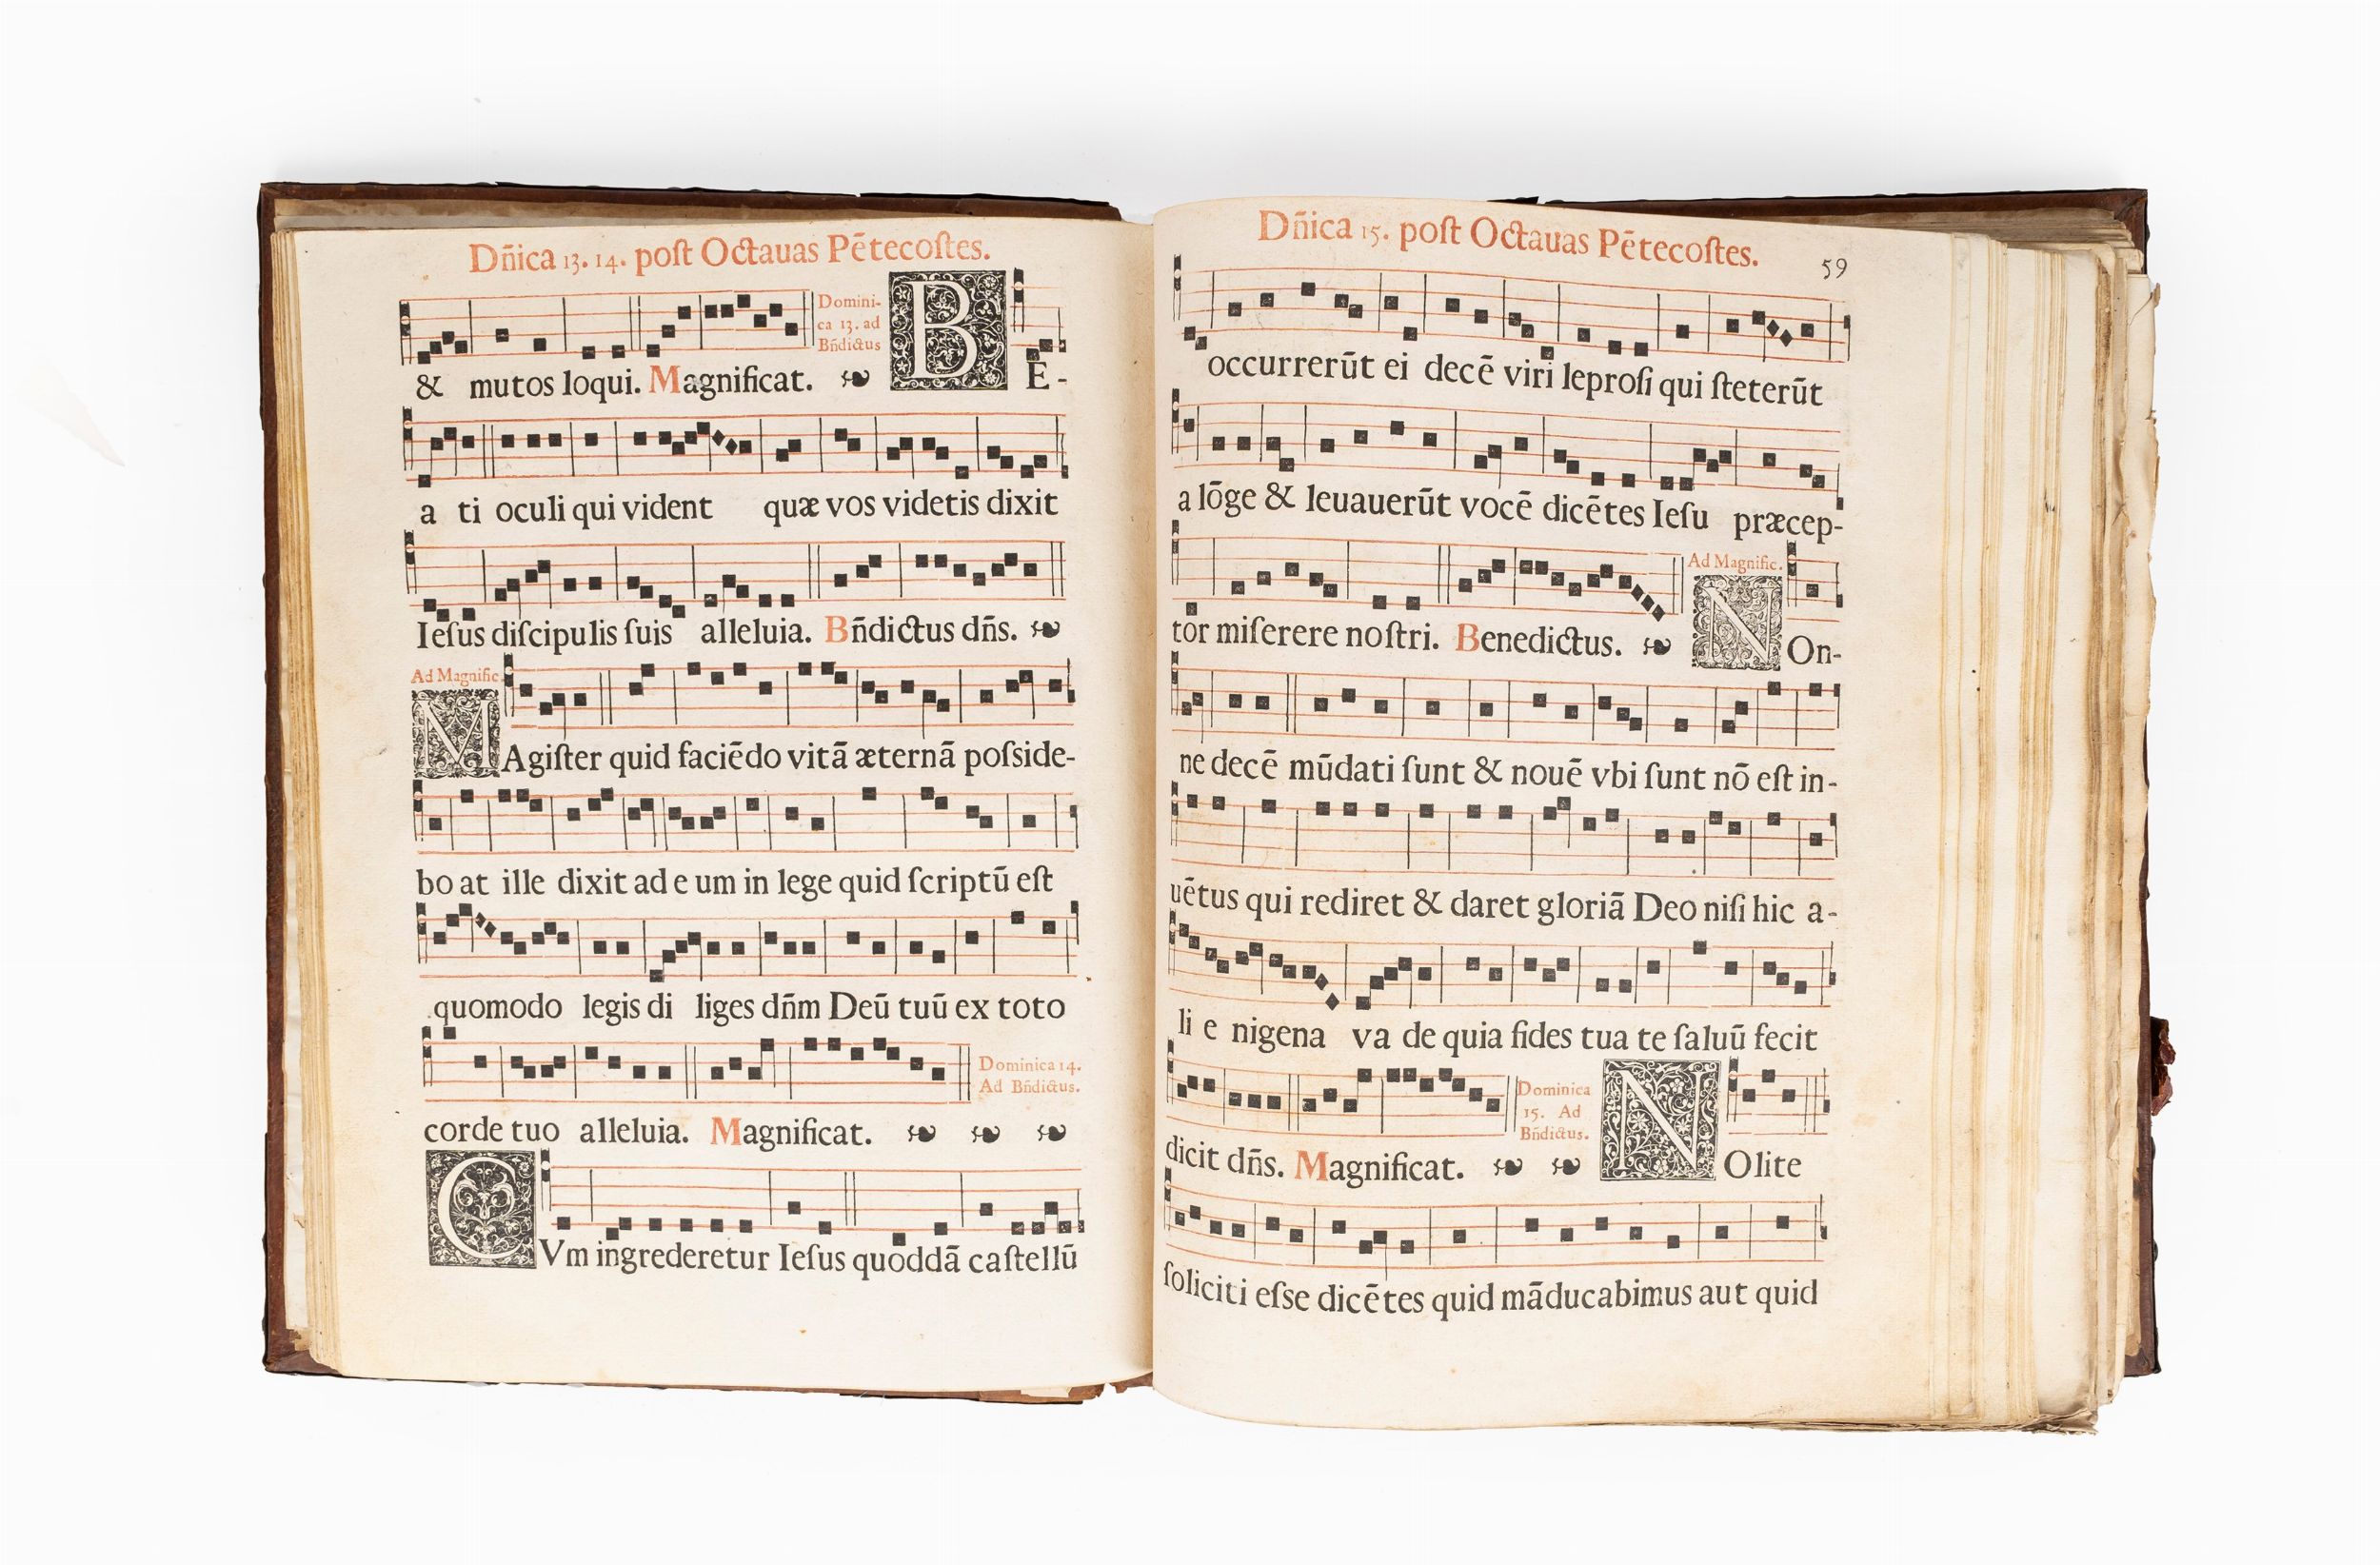 Dñica 13. 14. poſt Octauas Pētecoſtes.
Domini-
ca 13. ad
Bñdictus
& mutos loqui. Magnificat. BE-
a ti oculi qui vident quæ vos videtis dixit
Ieſus diſcipulis ſuis alleluia. Bñdictus dñs.
Ad Magnific.
MAgiſter quid faciēdo vitā æternā poſside-
bo at ille dixit ad e um in lege quid ſcriptū eſt
quomodo legis di liges dñm Deū tuū ex toto
Dominica 14.
Ad Bñdictus.
corde tuo alleluia. Magnificat.
CVm ingrederetur Ieſus quoddā caſtellū
Dñica 15. poſt Octauas Pētecoſtes.
59
occurrerūt ei decē viri leproſi qui ſteterūt
a lōge & leuauerūt vocē dicētes Ieſu præcep-
Ad Magnific.
tor miſerere noſtri. Benedictus. NOn-
ne decē mūdati ſunt & nouē vbi ſunt nō eſt in-
uētus qui rediret & daret gloriā Deo niſi hic a-
li e nigena va de quia fides tua te ſaluū fecit
Dominica
15. Ad
Bñdictus.
dicit dñs. Magnificat. NOlite
ſoliciti eſse dicētes quid māducabimus aut quid